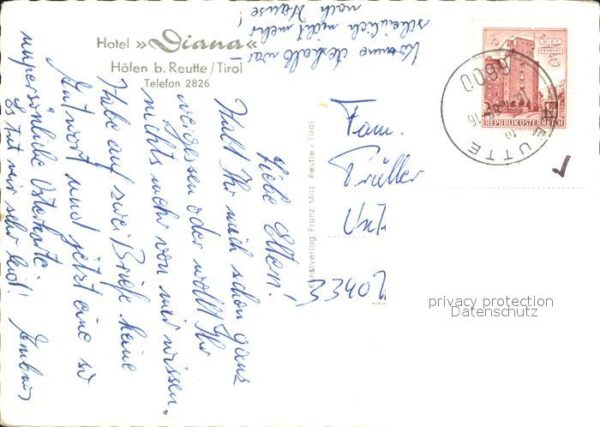 Hotel »Diana«
Höfen b. Reutte/Tirol
Telefon 2826
Liebe Eltern!
Habt Ihr mich schon ganz
vergessen oder wollt Ihr
nichts mehr von mir wissen.
Habe auf zwei Briefe keine
Antwort und jetzt eine so
unpersönliche Osterkarte
Es tut mir sehr leid!
Komme deshalb wahr-
scheinlich nicht mehr
nach Hause!
Fam.
Prüller
Kunstverlag Franz Milz Reutte / Tirol
REPUBLIK ÖSTERREICH
6600
REUTTE
privacy protection
Datenschutz